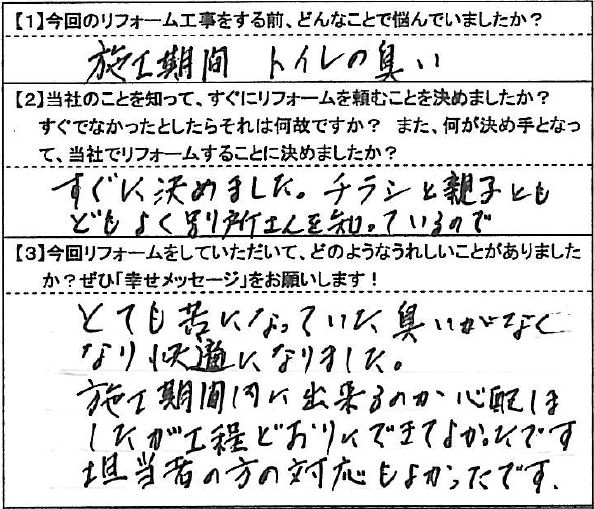 【1】今回のリフォーム工事をする前、どんなことで悩んでいましたか？
施工期間 トイレの臭い
【2】当社のことを知って、すぐにリフォームを頼むことを決めましたか？
すぐでなかったとしたらそれは何故ですか？ また、何が決め手となっ
て、当社でリフォームすることに決めましたか？
すぐに決めました。チラシと親子とも
どもよく別所さんを知っているので
【3】今回リフォームをしていただいて、どのようなうれしいことがありました
か？ぜひ「幸せメッセージ」をお願いします！
とても苦になっていた臭いがなく
なり快適になりました。
施工期間内に出来るのか心配しま
したが工程どおりにできてよかったです
担当者の方の対応もよかったです.